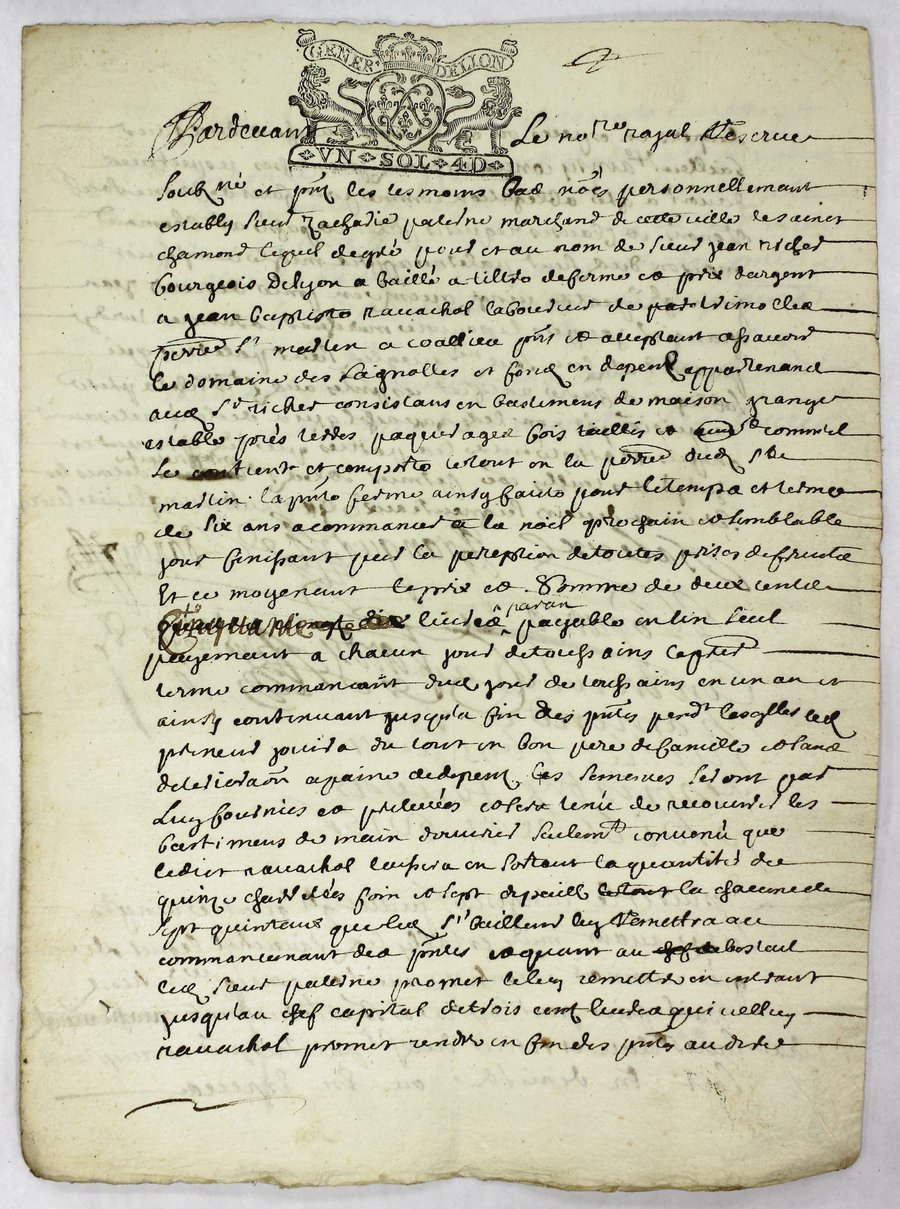 GENER DELION
VN SOL 4D
Pardevant Le no.re royal Reservé
soub.né et p.nt les tesmoins bas no.és personnellemant
estably sieur Zacharie paterne marchand de cette ville de sainct
chamond lequel de gré pour et au nom de sieur jean richer
bourgeois de lyon a baillé a tiltre de ferme et prix dargent
a jean baptiste ravachol laboureur de
perre St martin a coallieu p.nt et acceptant assavoir
le domaine des Lagnolles et fondz en depent appartenand
aud Sr richer consistans en bastimens de maison grange
estable prés terres paquerages bois taillis et comm'il
se contient et comporte le tout en la perre dud St
martin la p.nte ferme ainsy faite pour le temps et terme
de six ans a commancer a la noel prochain et semblable
jour finissant par la perception de toutes prises de fruits
Et ce moyenant le prix et somme de deux cents
Cinquante livres par an payable en un seul
payemant a chacun jour de toussains le p.er
terme commancant dud jour de toussains en un an et
ainsy continuant jusqu'a fin des p.ntes pend.t lesq.lles led
preneur jouira du tout en bon pere de famille et sans
deterioraõn a paine de depens Les semences seront par
Luy fournies et prelevées et sera tenu de recouvrir les
bastimens de main d'ouvrier seulem.t convenu que
ledict ravachol laissera en sortant la quantité de
quinze charretées foin et sept de paille le tout la chacune de
sept quintaux que led Sr bailleur luy remettra au
commancemant des p.ntes et quant au chef de bestail
led sieur paterne promet le luy remettre en entrant
jusqu'au chef capital de trois cent livres que icelluy
ravachol promet rendre en fin des p.ntes au dire